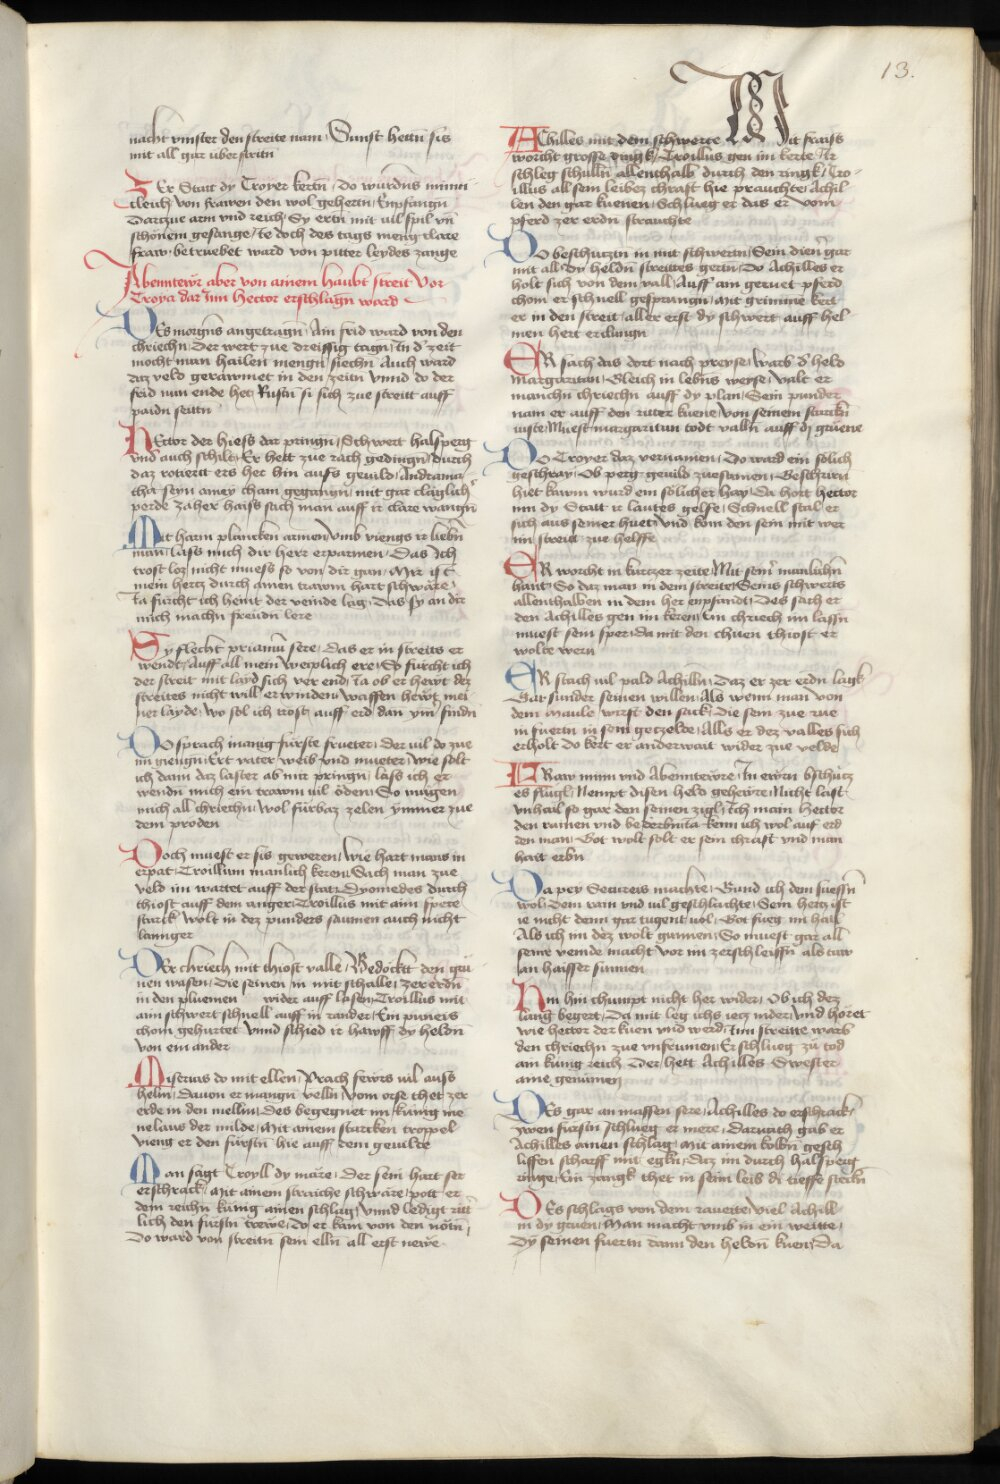 13.
nacht vinster den streite nam / Sunst hettn̄ sis
mit all gar überstritn̄
Er Statt dy Troyer kertn̄ / Do wurdn̄s minni-
cleich von frawen den wol gehertn̄ / Enpfangn̄
Dartzue arm vnd reich / Sy ertn̄ mit vil spil vn̄
schönem gesange / Ie doch des tags menig clare
fraw / betruebet ward von pitter leydes zange
Abenntewr aber von ainem haubt streit Vor
Troya dar Inn Hector erschlagn̄ ward
Es morgn̄s angetragn̄ / Ain frid ward von den
chriechn̄ / Der wert zue dreissig tagn̄ / In d' zeit
mocht man hailen mengn̄ siechn̄ / Auch ward
daz veld gerawmet in den zeitn̄ Vnnd do der
frid nun ende het / Rustn̄ si sich zue streitt auff
paidn̄ seittn̄
Hector der hiess dar pringn̄ / Schwert halsperg
vnd auch schilt / Er hett zue rach gedingn̄ / durch
daz rotiertt ers her hin aufs gevild / Andrama-
cha seyn amey cham gegangn̄ / mit gar cläglich'
perde zäher haiss sach man auff ir clare wangn̄
Mit harm plancken armen / Vmb viengs ir liebn̄
man / lass mich dir herr erparmen / Das Ich
trost loz nicht muess so von dir gan / Mir ist
mein hertz durch ainen trawm hart schwäre /
Ia furcht ich heint der veinde lag / Das sy an dir
mich machn̄ freudn̄ lere
Sy flecht priamū sere / Das er in streits er
wendt / Auff all mein weiplich ere / So fürcht ich
der streit mit layd sich verend / Ia ob er hewt dez
streites nicht will erwinden / waffen hewt mei
ner layde / wo sol ich trost / auff erd dan ym̄ findn̄
Do sprach manig fürste frueter / Der vil do zue
im giengn̄ / Ert vater weib vnd mueter / wie solt
ich dann daz laster ab mir pringn̄ / lass ich er
wendn̄ mich ein trawm vil öden / So mügen
mich all chriechn̄ / wol fürbaz zelen ymmer zue
dem proden
Doch muest er sis geweren / wie hart mans in
erpat / Troillum manlich keren / Sach man zue
veld im wartet auff der stat / Dyomedes durch
thiost auff dem anger / Troillus mit aim spere
starck wolt in dez punders saumen auch nicht
lannger
Der chriech mit thiost valle / Bedöcktt den grü-
nen wasen / Die seinen in mit schalle / zer erdn̄
in den pluemen wider auff lasen / Troillus mit
aim schwert schnell auff in rander / Ein puneis
chom gehurtet vnnd schied ir hawff dy heldn̄
von ein ander
Miserias do mit ellen / Prach fewrs vil auss
helm / Dauon er mangn̄ velln̄ / Vom orse thet zer
erde in den mellm̄ / Des begegnet im künig me
nelaus der milde / Mit ainem starcken troppel
vieng er den fürstn̄ hie auff dem gevilde
Man sagt Troyll dy märe / Der sein hart ser
erschrack / Mit ainem straiche schwäre / pott er
dem reichn̄ künig ainen schlag / Vnnd ledigt ritt
lich den fürstn̄ trewe / do er kam von den nötn̄ /
Do ward von streitn̄ sein elln̄ all erst newe
Achilles mit dem schwerte Mit fraiss
worcht grosse ding / Troillus gen im kerte / Er
schlug schulln̄ allenthalb durch den ringk / Tro-
illus all sein leibez chrafft hie prauchte / Achil
len den gar kuenen / Schlueg er das er vom
pferd zer erdn̄ strauchte
Do beschutztn̄ in mit schwertn̄ / Sein dien' gar
mit all / Dy heldn̄ streittes gertn̄ / Do Achilles er
holt sich von dem vall / Auff ain geruet pferd
chom er schnell gesprangn̄ / mit grimme kert
er in den streit / aller erst dy schwert auff hel-
men hert erclungn̄
Er sach das dort nach preyse / warb d' held
Margariton / Gleich in lebn̄s weyse / valt er
manchn̄ chriechn̄ auff dy plan / Sein punder
nam er auff den ritter kuene / von seinem starckn̄
iuste / Muest margariton todt valln̄ auff di gruene
Do Troyer daz vernamen / Do ward ein sölich
geschray / Ob perg gevild zuesamen / Beschirrn̄
hiet kawm wurd ein sölicher hay / Da hort hector
inn dy Statt ir lautes gelfe / Schnell stal er
sich aus seiner huet / Vnd kom den sein mit wer
im streitt zue helffe
Er worcht in kurtzer zeite / Mit sein' manlichn̄
hant / So daz man in dem streite / Seins schwerts
allenthalben in dem her enpfandt / Des sach er
den Achilles gen im keren / Ein chriech im lassn̄
muest sein sper / da mit den chuen thiost er
wolte wern
Er stach vil pald Achilln̄ / Daz er zer erdn̄ lagk
Gar sunder seinen willen / Als wenn man von
dem maule wirft den sack / Die sein zue rue
in fuertn̄ in sein getzelde / Alls er dez valles sich
erholt do kert er anderwait wider zue velde
Fraw minn vnd Abenntewre / In ewrn̄ schutz
es slugl / Nempt disen held geheure / Nicht last
vnhail so gar den seinen zigl / Ich main Hector
den rainen vnd bederbnn̄ta kenn ich wol auf erd
den man / Got wolt solt er sein chrafft vnd man
hait erbn̄
Da pey Secureis machte / Gund ich dem suessn̄
wol / Dem rain vnd vil geschlachte / Sein hertz ist
ie nicht denn gar tugent vol / Got fueg im hail
Als ich im dez wolt gunnen / So muest gar all
seine veinde macht vor im zerschleiffn̄ als taw
an haisser sunnen
Hin hin chumpt nicht her wider / Ob ich dez
lang begert / Da mit leg ichs ietz nider / vnd höret
wie hector der kuen vnd werd / Inn streitte warb
den chriechn̄ zue vnfrumen / Er schlueg zu tod
ain künig reich Der hett Achilles Swester
aine genūmen
Des gar an massen sere / Achilles do erschrack /
zwen fürstn̄ schlueg er mere / Darnach gab er
Achilles ainen schlag / Mit ainem kolbn̄ gesch
liffen scharff mit egkn̄ / Daz im durch halsperg
ringe / Ein zangk thet in seim leib di tieffe steckn̄
Des schlags von dem raveite / Viel Achill
in dy gruen / Man macht vmb in ein weitte /
Dy seinen fuertn̄ dann den heldn̄ kuen / Da